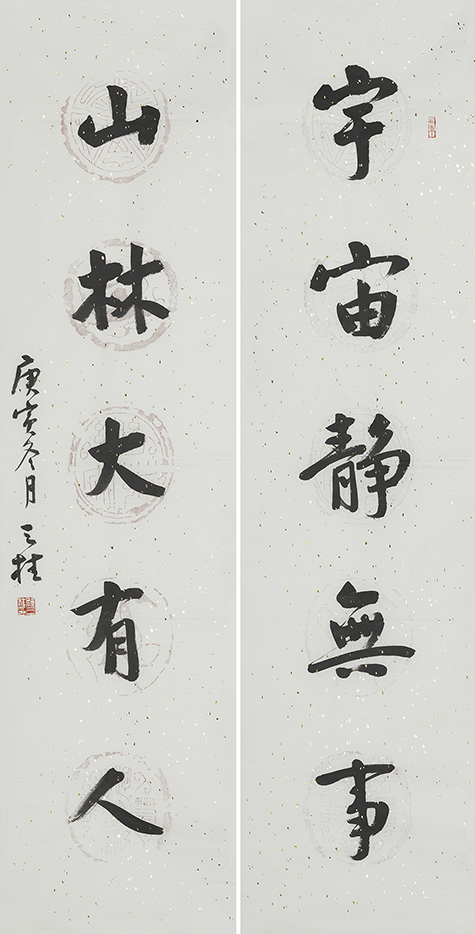 宇宙靜無事
山林大有人
庚寅冬月